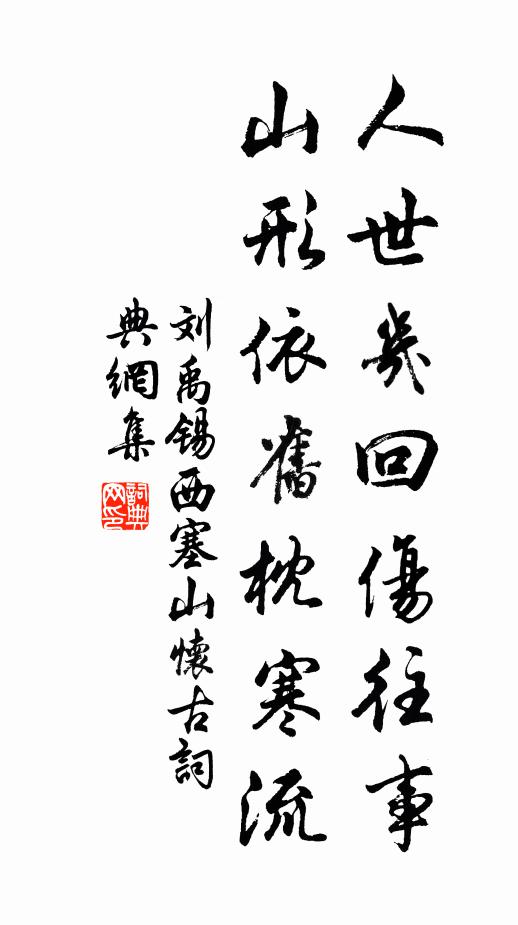 人世幾回傷往事
山形依舊枕寒流
刘禹锡西塞山懷古詞
典網集
詞典
网印